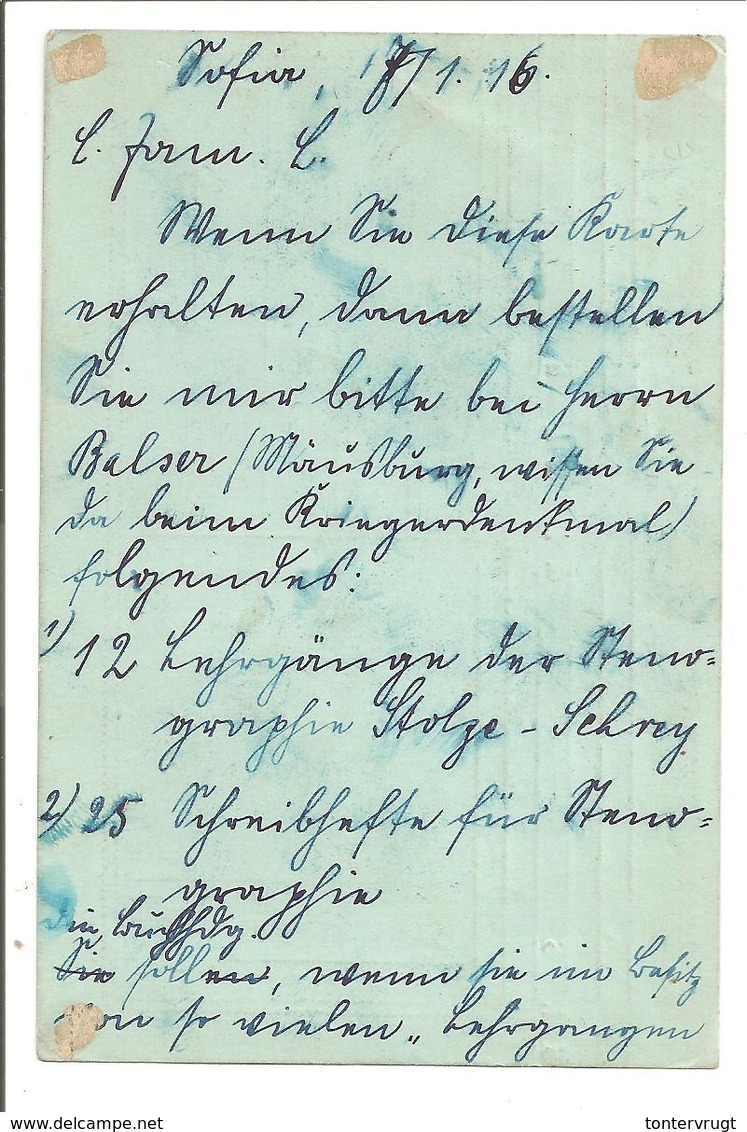 Sofia, 7/1.16.
L. Fam. L.
Wenn Sie diese Karte
erhalten, dann bestellen
Sie mir bitte bei Herrn
Balser (Mäusburg, wissen Sie
da beim Kriegerdenkmal)
folgendes:
1) 12 Lehrgänge der Steno=
graphie Stolze-Schrey
2) 25 Schreibhefte für Steno=
graphie
die Buchhdg.
Sie sollen, wenn sie im Besitz
von so vielen „Lehrgangen
www.delcampe.net
tontervrugt